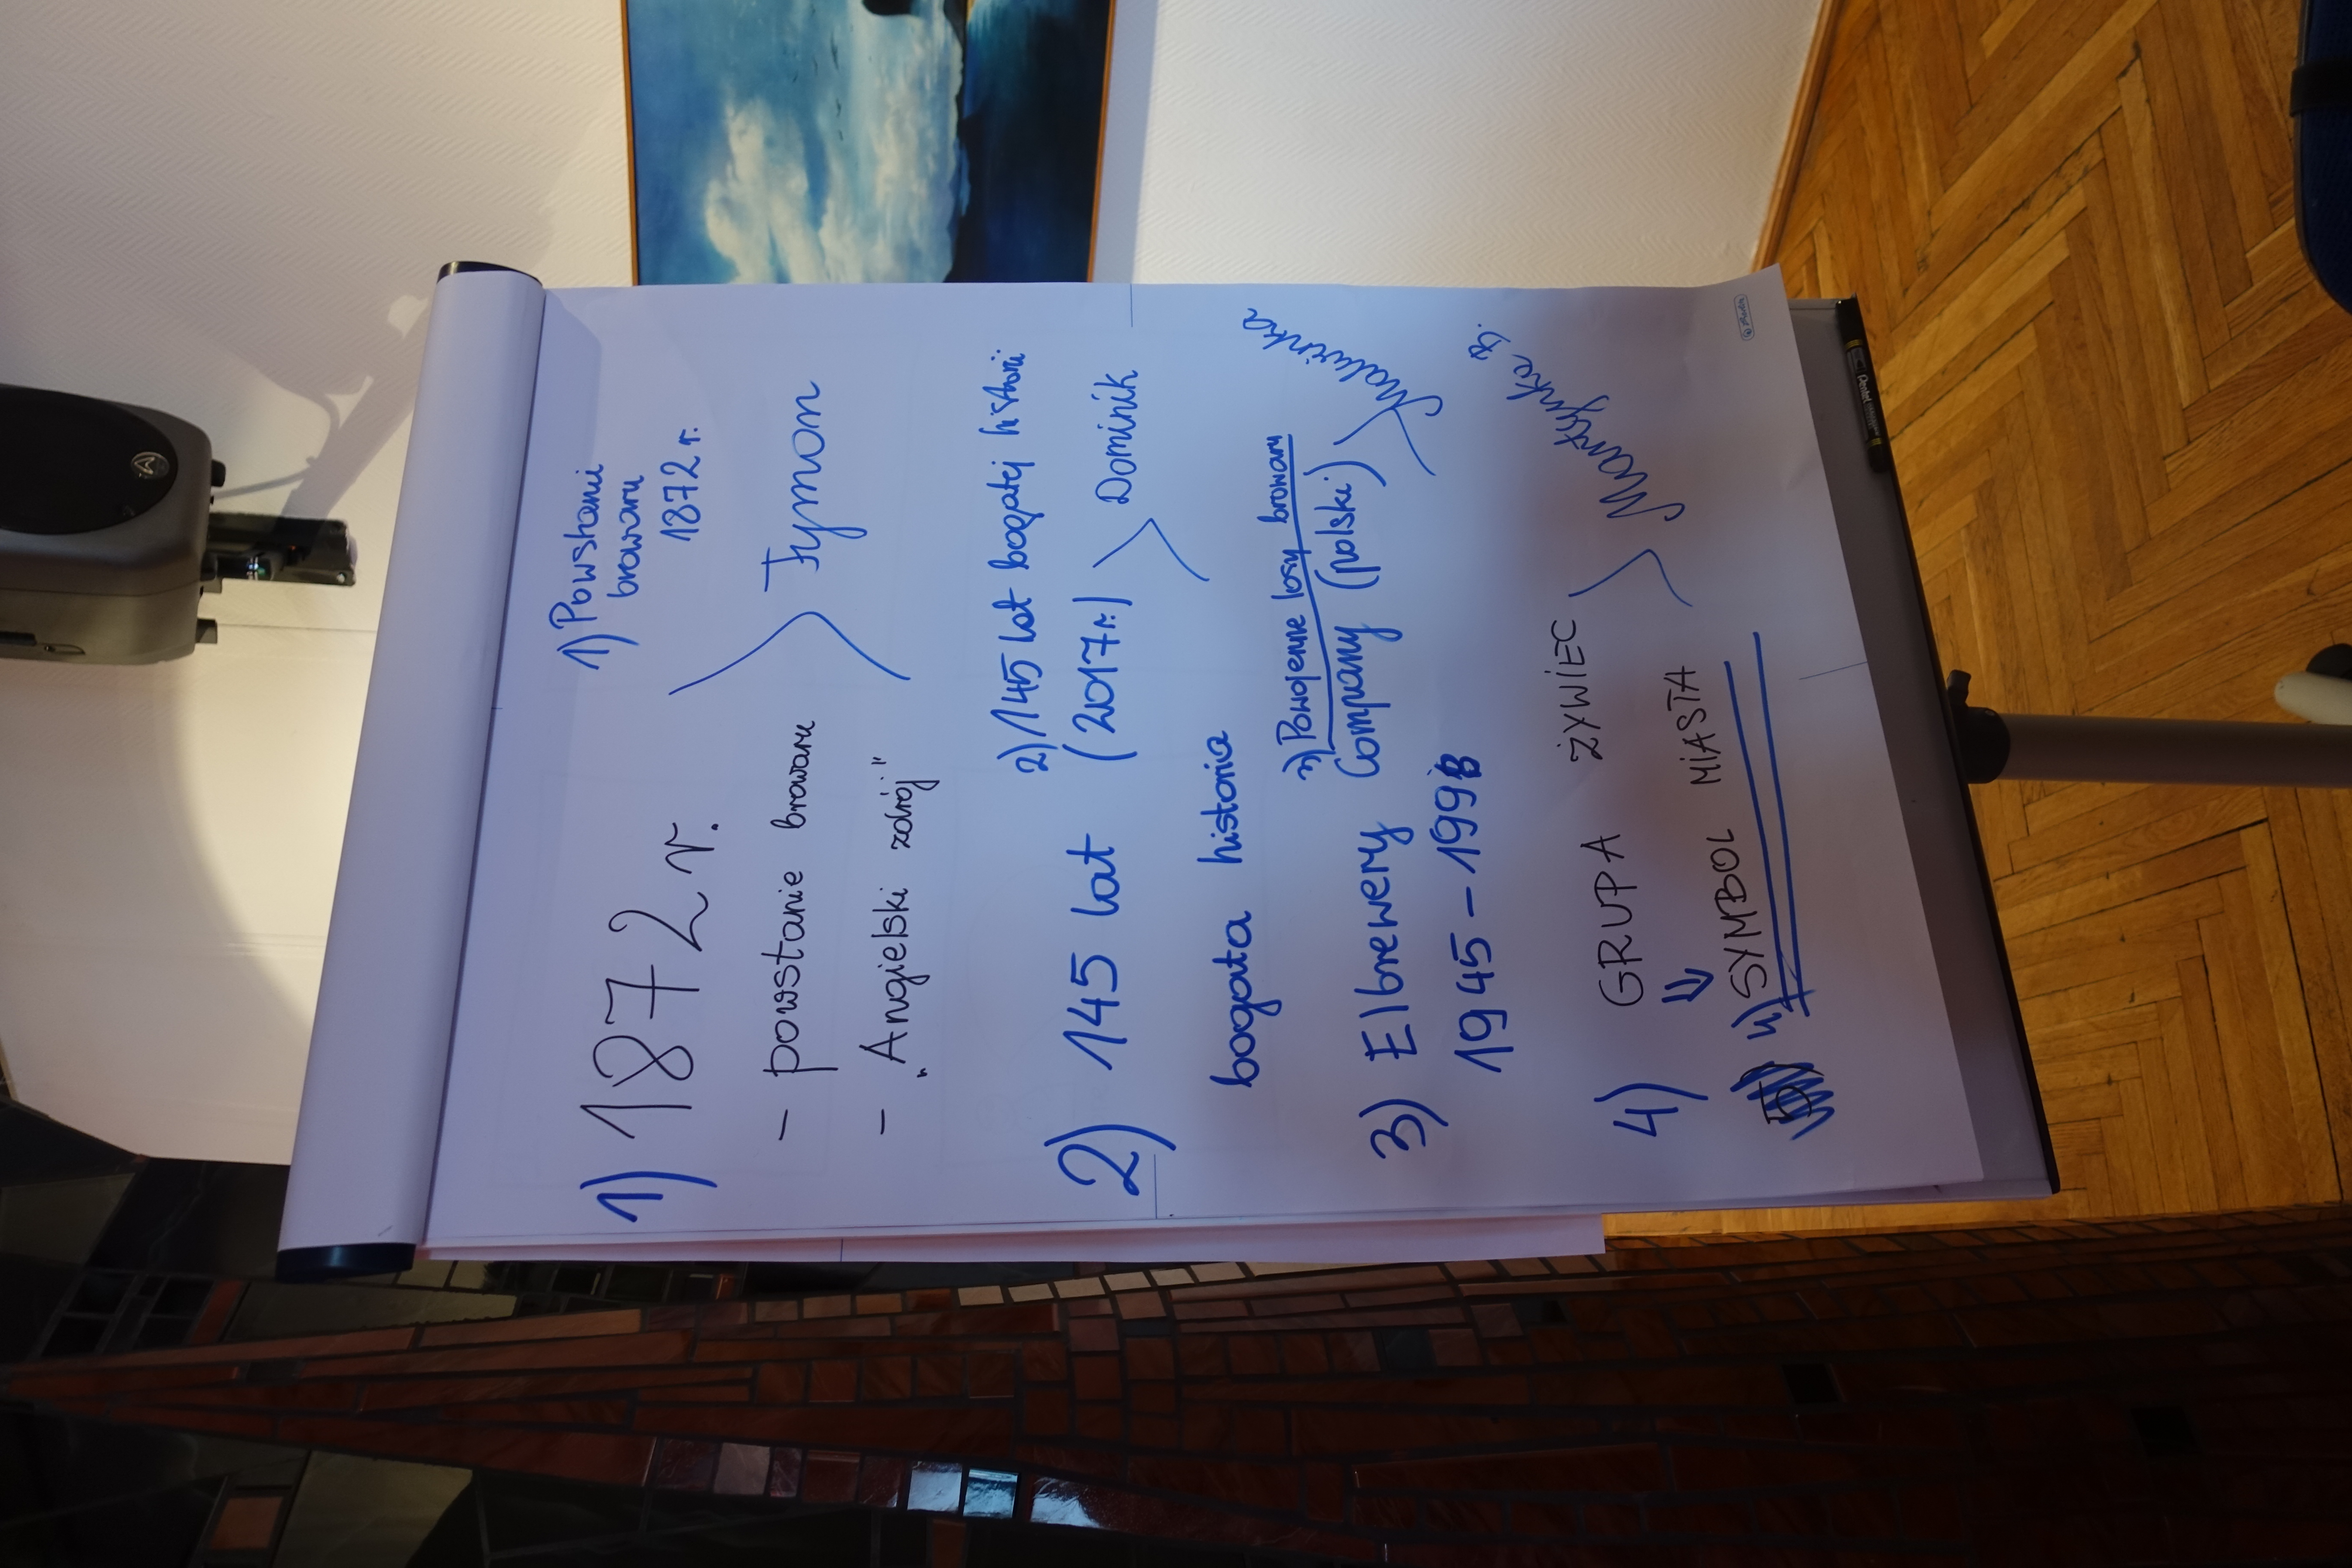 1) Powstanie
browaru
1872 r.
1) 1872 r.
- powstanie browaru
- "Angielski zdrój"
> Tymon
2) 145 lat bogatej historii
2) 145 lat (2017r.) > Dominik
bogata historia
3) Powojenne losy browaru
3) Elbrewery Company (polski) > Malwinka
1945 - 1998
4) GRUPA ŻYWIEC > Martynka B.
⇓
4) SYMBOL MIASTA
Pentel